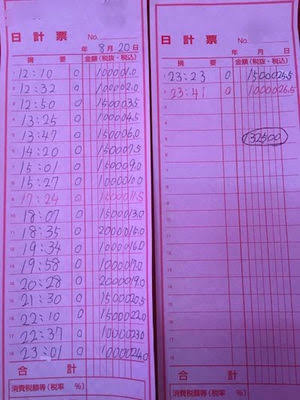 日計票
No.
年 8月20日
摘 要 金額(税抜・税込)
1 12:10 0 10000 1.0
2 12:32 0 10000 2.0
3 12:50 0 15000 3.5
4 13:25 0 10000 4.5
5 13:47 0 15000 6.0
6 14:20 0 15000 7.5
7 15:01 0 15000 9.0
8 15:27 0 10000 10.0
9 17:24 0 15000 11.5
10 18:07 0 15000 13.0
11 18:35 0 20000 15.0
12 19:34 0 10000 16.0
13 19:58 0 10000 17.0
14 20:28 0 20000 19.0
15 21:30 0 15000 20.5
16 22:10 0 15000 22.0
17 22:37 0 10000 23.0
18 23:01 0 10000 24.0
合 計
消費税額等(税率 %)
日計票
No.
年 月 日
摘 要 金額(税抜・税込)
1 23:23 0 15000 25.5
2 23:41 0 10000 26.5
3
4
5 132500
6
7
8
9
10
11
12
13
14
15
16
17
18
合 計
消費税額等(税率 %)